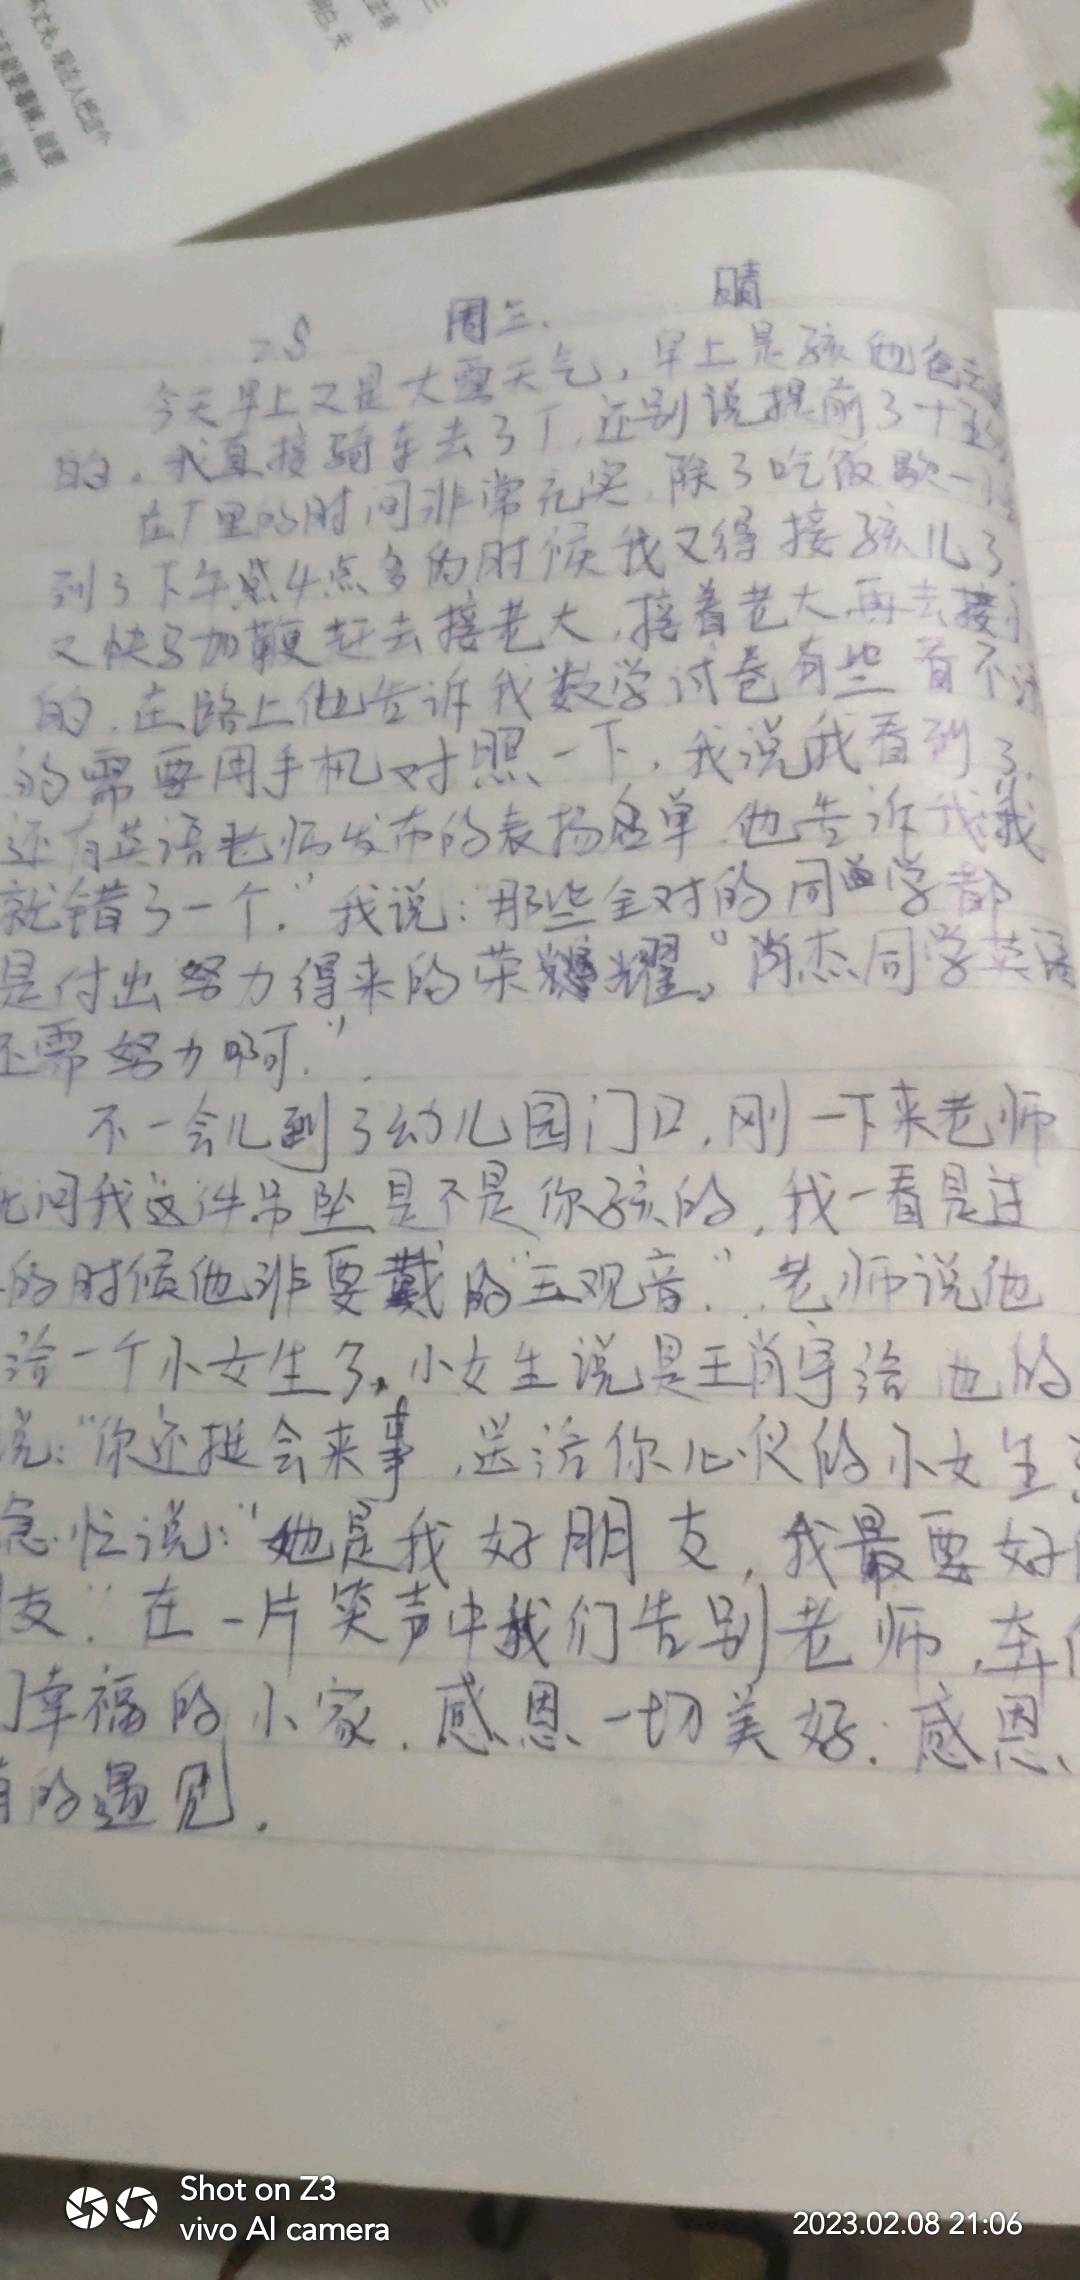 2.8 周三. 晴
今天早上又是大雪天气，早上是孩他爸
的。我直接骑车去了厂，还别说提前了十
在厂里的时间非常充实，除了吃饭歇一
到了下午点4点多的时候我又得接孩儿了.
又快马加鞭赶去接老大，接着老大再去接
的，在路上他告诉我数学试卷有些看不
的需要用手机对照一下，我说我看到了.
还有英语老师发布的表扬名单，他告诉我
就错了一个.”我说：那些全对的同学都
是付出努力得来的荣耀。肖杰同学英语
还需努力啊.”
不一会儿到了幼儿园门口，刚一下来老师
问我这件吊坠是不是你孩的，我一看是
的时候他非要戴的“玉观音”.老师说他
给一个小女生了，小女生说是王肖宇给他的
说：“你还挺会来事，送给你心仪的小女生
急忙说：“她是我好朋友，我最要好
友”.在一片笑声中我们告别老师，奔
幸福的小家，感恩一切美好.感恩
的遇见.
Shot on Z3
vivo AI camera
2023.02.08 21:06